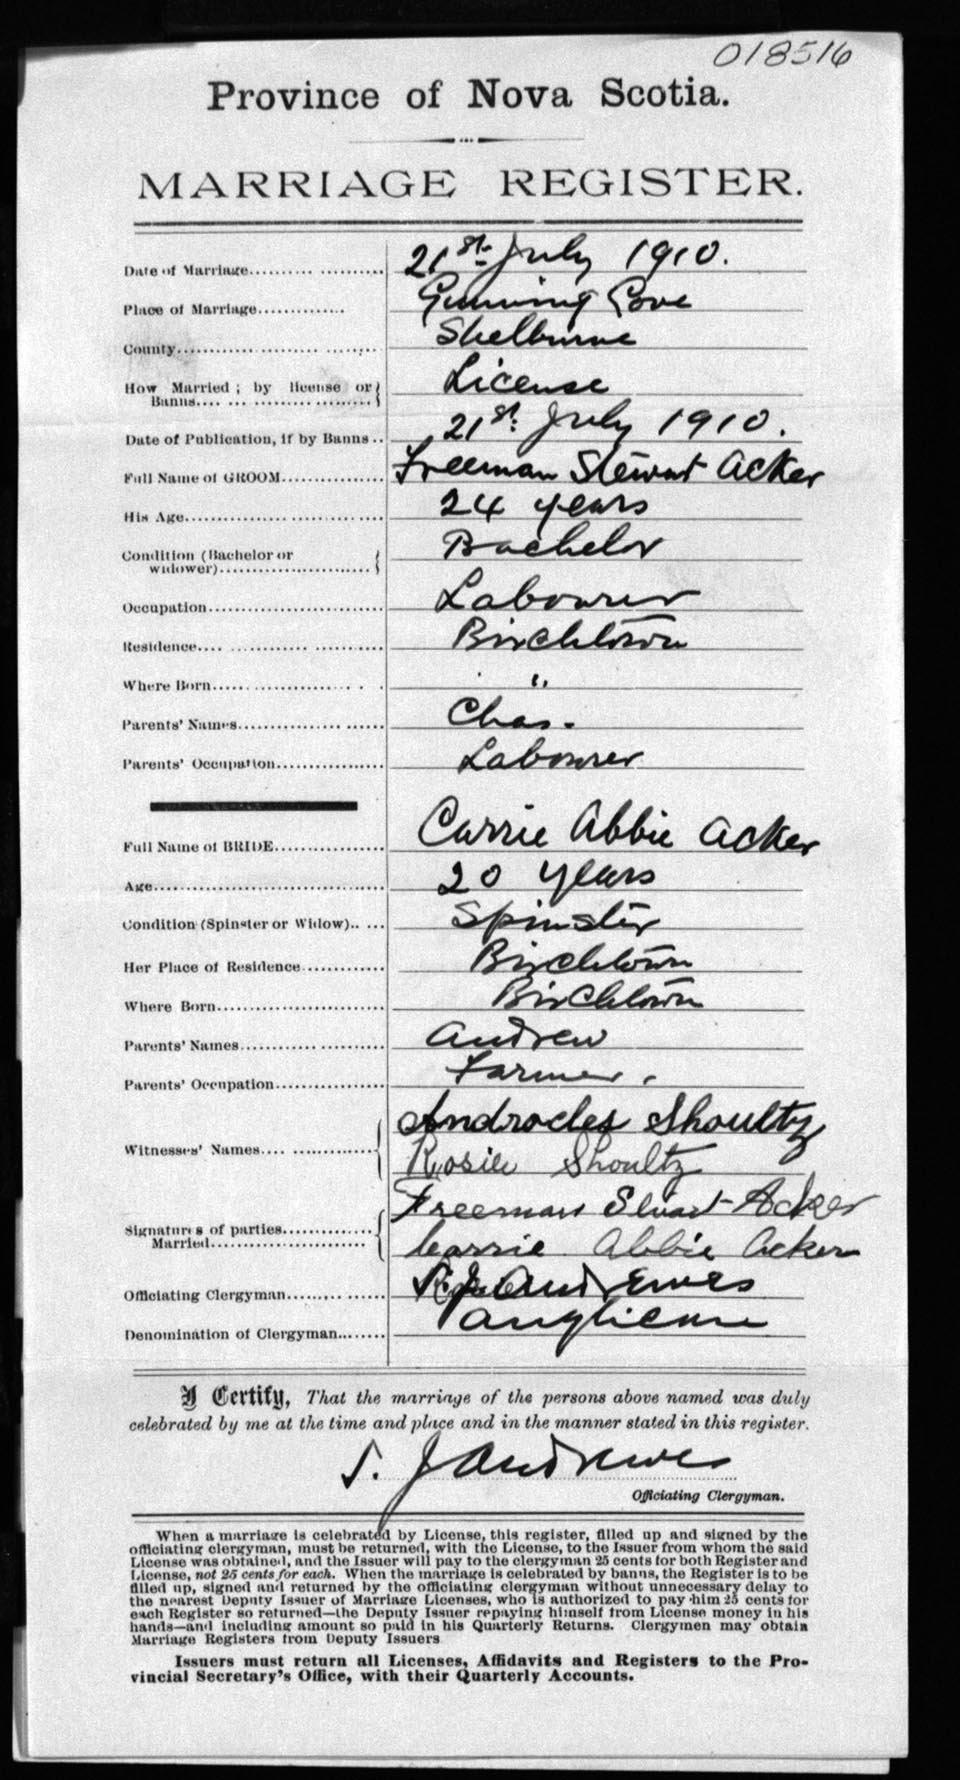 018516
Province of Nova Scotia.
MARRIAGE REGISTER.
Date of Marriage 21st July 1910.
Place of Marriage Gunning Cove
County Shelburne
How Married; by license or
Banns License
Date of Publication, if by Banns 21st July 1910.
Full Name of GROOM Freeman Stewart Acker
His Age 24 years
Condition (Bachelor or
widower) Bachelor
Occupation Labourer
Residence Birchtown
Where Born "
Parents' Names Chas.
Parents' Occupation Labourer
Full Name of BRIDE Carrie Abbie Acker
Age 20 years
Condition (Spinster or Widow) Spinster
Her Place of Residence Birchtown
Where Born Birchtown
Parents' Names Andrew
Parents' Occupation Farmer.
Witnesses' Names Androcles Shoultz
Rosie Shoultz
Signatures of parties Freeman Acker
Married Carrie Abbie Acker
Officiating Clergyman Andrewes
Denomination of Clergyman Anglican
I Certify, That the marriage of the persons above named was duly
celebrated by me at the time and place and in the manner stated in this register.
S. J Andrewes
Officiating Clergyman.
When a marriage is celebrated by License, this register, filled up and signed by the
officiating clergyman, must be returned, with the License, to the Issuer from whom the said
License was obtained, and the Issuer will pay to the clergyman 25 cents for both Register and
License, not 25 cents for each. When the marriage is celebrated by banns, the Register is to be
filled up, signed and returned by the officiating clergyman without unnecessary delay to
the nearest Deputy Issuer of Marriage Licenses, who is authorized to pay him 25 cents for
each Register so returned—the Deputy Issuer repaying himself from License money in his
hands—and including amount so paid in his Quarterly Returns. Clergymen may obtain
Marriage Registers from Deputy Issuers
Issuers must return all Licenses, Affidavits and Registers to the Pro-
vincial Secretary's Office, with their Quarterly Accounts.